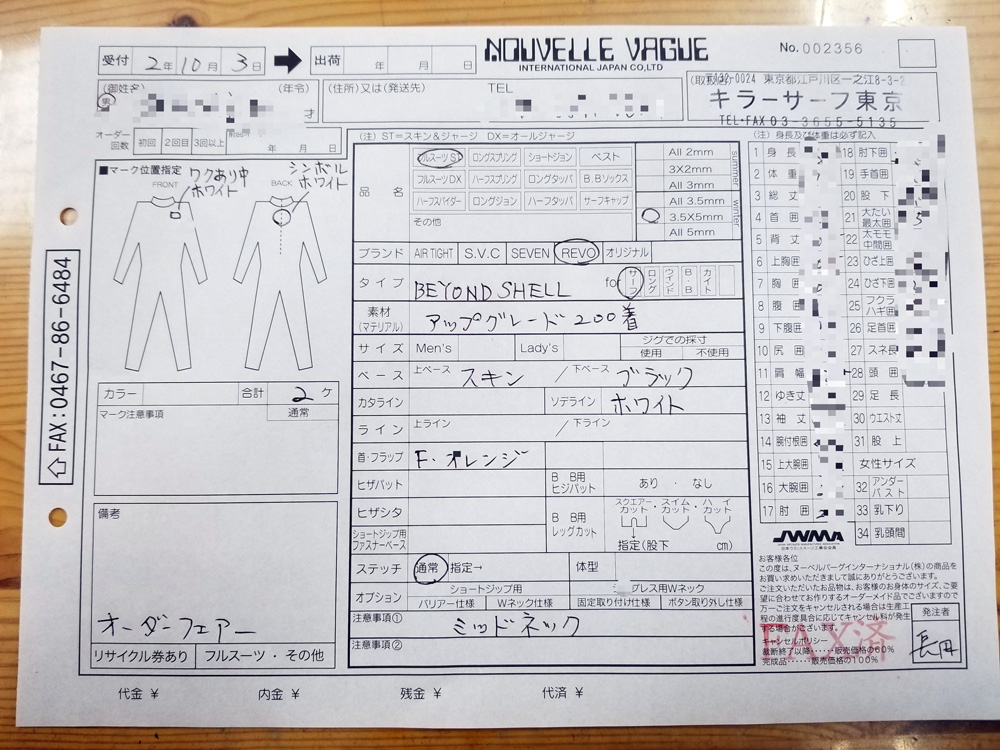 受付 2年10月3日 ➡ 出荷 年 月 日
NOUVELLE VAGUE
INTERNATIONAL JAPAN CO,LTD
No. 002356
(御姓名) (年令)
男 才
(住所)又は(発送先) TEL
(取扱店) 〒132-0024 東京都江戸川区一之江8-3-2
キラーサーフ東京
TEL・FAX 03-3655-5135
オーダー回数 初回 2回目 3回以上 年 月 日
(注) ST=スキン&ジャージ DX=オールジャージ
(注) 身長及び体重は必ず記入
■マーク位置指定
FRONT ワクあり中 ホワイト
BACK シンボル ホワイト
品名
フルスーツST ロングスプリング ショートジョン ベスト
フルスーツDX ハーフスプリング ロングタッパ B.Bソックス
ハーフスパイダー ロングジョン ハーフタッパ サーフキャップ
その他
All 2mm
3X2mm
All 3mm
All 3.5mm
3.5X5mm
All 5mm
summer
winter
ブランド AIR TIGHT S.V.C SEVEN REVO オリジナル
タイプ BEYOND SHELL for サーフ ロング ウィンド B・B カイト
素材(マテリアル) アップグレード200着
サイズ Men's Lady's ジグでの採寸 使用 不使用
ベース 上ベース スキン / 下ベース ブラック
カタライン ソデライン ホワイト
ライン 上ライン / 下ライン
首・フラップ F・オレンジ
ヒザパット B B用ヒジパット あり ・ なし
ヒザシタ B B用レッグカット スクエアーカット・スイムカット・ハイカット
指定(股下 cm)
ショートジップ用ファスナーベース
ステッチ 通常 指定→ 体型
オプション ショートジップ用 グレス用Wネック
バリアー仕様 Wネック仕様 固定取り付け仕様 ボタン取り外し仕様
注意事項① ミッドネック
注意事項②
カラー 合計 2ケ
マーク注意事項 通常
備考
オーダーフェアー
リサイクル券あり フルスーツ・その他
⇧FAX:0467-86-6484
1 身長
2 体重
3 総丈
4 首囲
5 背丈
6 上胸囲
7 胸囲
8 腹囲
9 下腹囲
10 尻囲
11 肩幅
12 ゆき丈
13 袖丈
14 腕付根囲
15 上大腕囲
16 大腕囲
17 肘囲
18 肘下囲
19 手首囲
20 股下
21 大たい最太囲
22 太モモ中間囲
23 ひざ上囲
24 ひざ下囲
25 フクラハギ囲
26 足首囲
27 スネ長
28 頭囲
29 足長
30 ウエスト丈
31 股上
女性サイズ
32 アンダーバスト
33 乳下り
34 乳頭間
JWMA
日本ウエットスーツ工業会会員
お客様各位
この度は、ヌーベルバーグインターナショナル(株)の商品を
お買い求めいただきまして誠にありがとうございます。
ご注文いただいたお品物は、お客様のお身体のサイズ、ご要
望に合わせてお作りするオーダーメイド品でございますので
万一ご注文をキャンセルされる場合は生産工
程の進行度具合に応じてキャンセル料が発生
する場合がございます。
キャンセルポリシー
裁断終了以降……販売価格の60%
完成品……販売価格の100%
FAX済
発注者
長田
代金 ¥ 内金 ¥ 残金 ¥ 代済 ¥